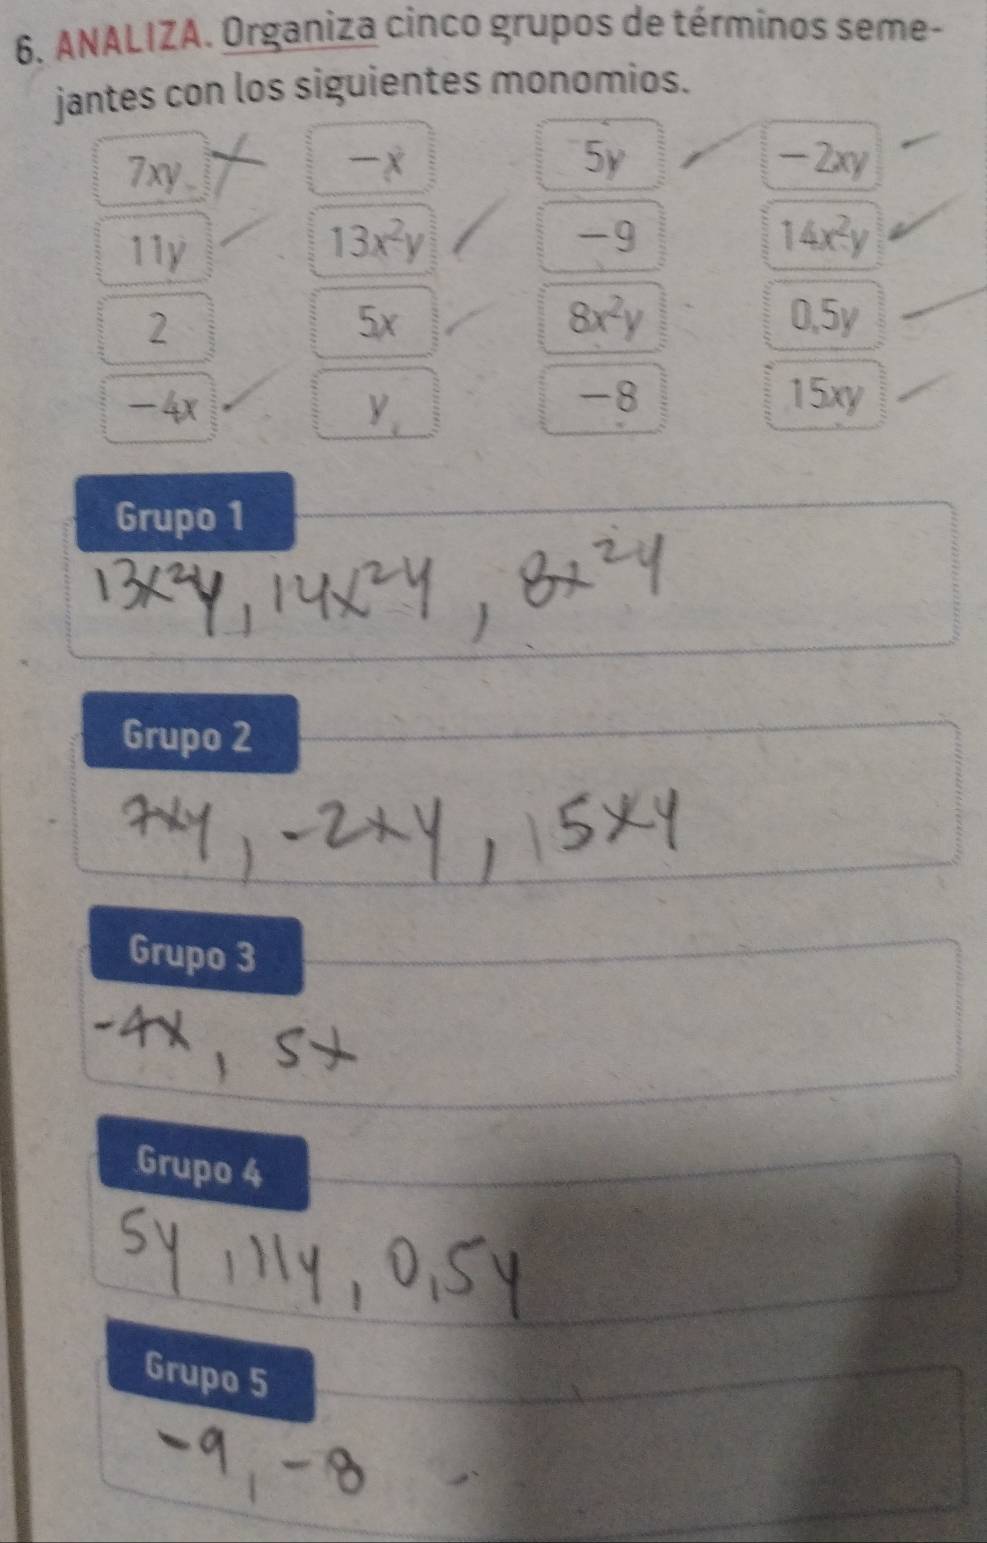 6. ANALIZA. Organiza cinco grupos de términos seme-
jantes con los siguientes monomios.
7xy -x 5y -2xy
11y 13x²y -9 14x²y
2 5x 8x²y 0,5y
-4x y -8 15xy
Grupo 1
13x²y, 14x²y, 8x²y
Grupo 2
7xy, -2xy, 15xy
Grupo 3
-4x, 5x
Grupo 4
5y, 11y, 0,5y
Grupo 5
-9, -8